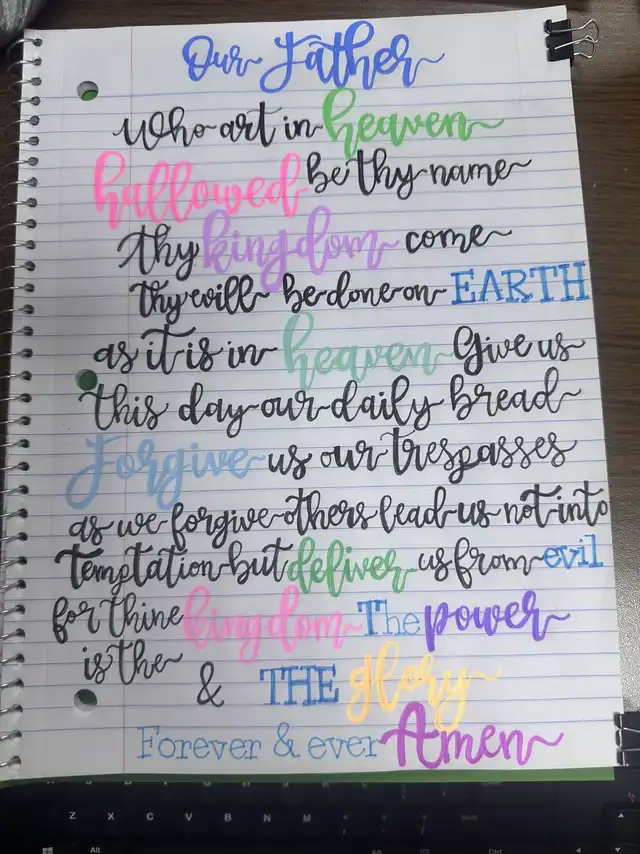 Our Father
Who art in heaven
hallowed be thy name
thy kingdom come
thy will be done on EARTH
as it is in heaven Give us
this day our daily bread
Forgive us our trespasses
as we forgive others lead us not into
temptation but deliver us from evil
for thine kingdom The power
is the
& THE glory
Forever & ever Amen
Z X C V B N M
Alt Alt Ctrl